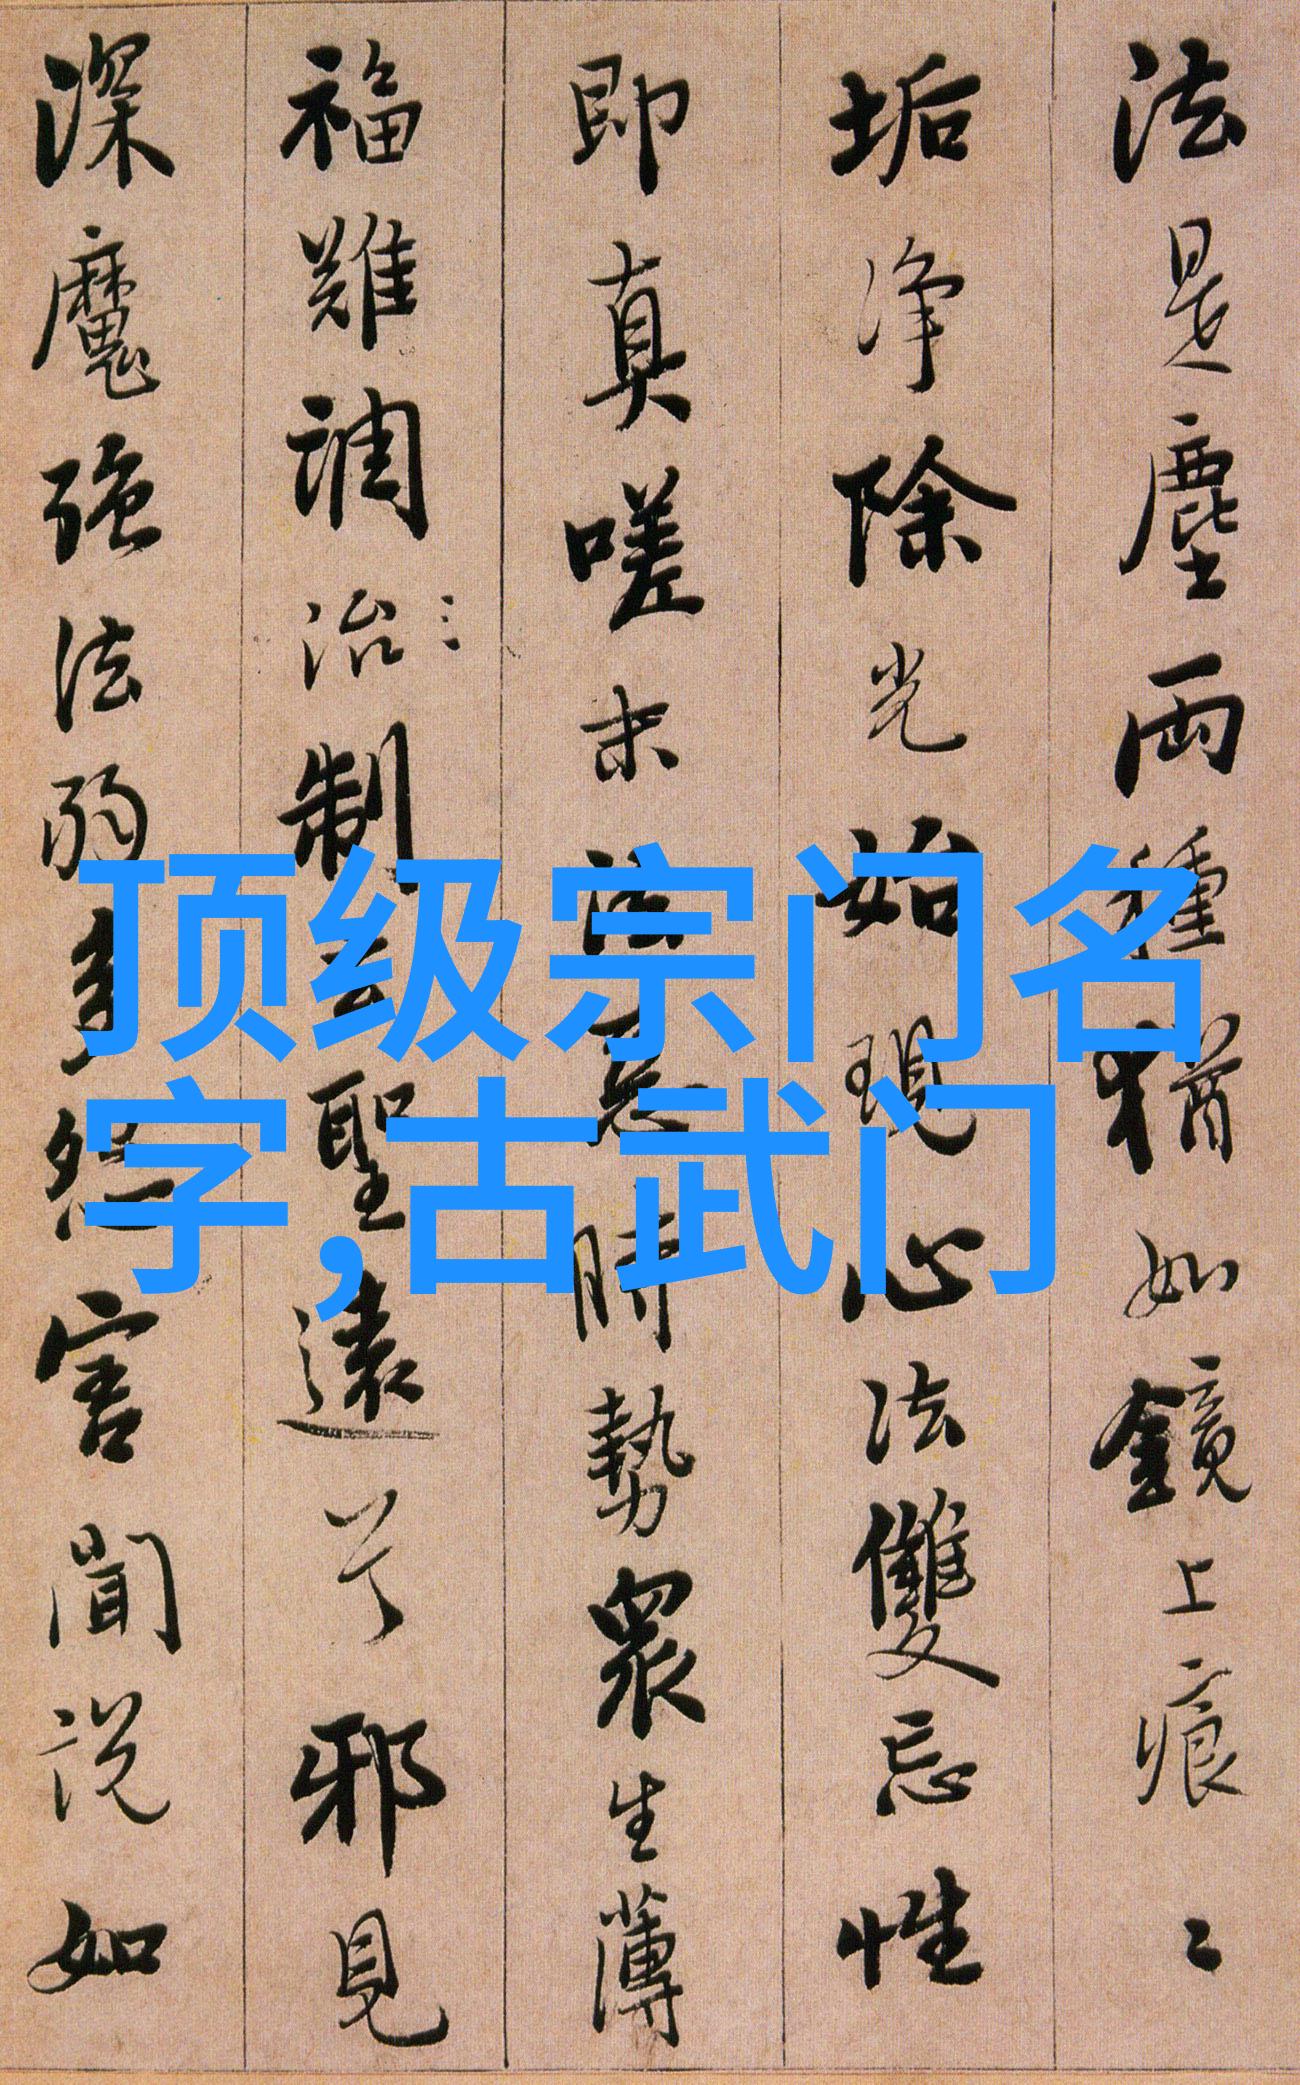 法是塵兩種猶如鏡上痕〻
垢净除光始現心法雙忘性
即真嗟末法惡時勢衆生薄
福難調治制去聖遠兮邪見
深魔強法弱多怨害聞説如
顶级宗门名
字,古武门